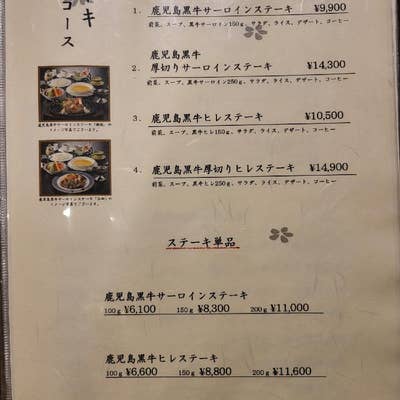 キ
コース
1. 鹿児島黒牛サーロインステーキ ¥9,900
前菜、スープ、黒牛サーロイン150g、サラダ、ライス、デザート、コーヒー
2. 鹿児島黒牛
厚切りサーロインステーキ ¥14,300
前菜、スープ、黒牛サーロイン250g、サラダ、ライス、デザート、コーヒー
3. 鹿児島黒牛ヒレステーキ ¥10,500
前菜、スープ、黒牛ヒレ150g、サラダ、ライス、デザート、コーヒー
4. 鹿児島黒牛厚切りヒレステーキ ¥14,900
前菜、スープ、黒牛ヒレ250g、サラダ、ライス、デザート、コーヒー
ステーキ単品
鹿児島黒牛サーロインステーキ
100g ¥6,100 150g ¥8,300 200g ¥11,000
鹿児島黒牛ヒレステーキ
100g ¥6,600 150g ¥8,800 200g ¥11,600